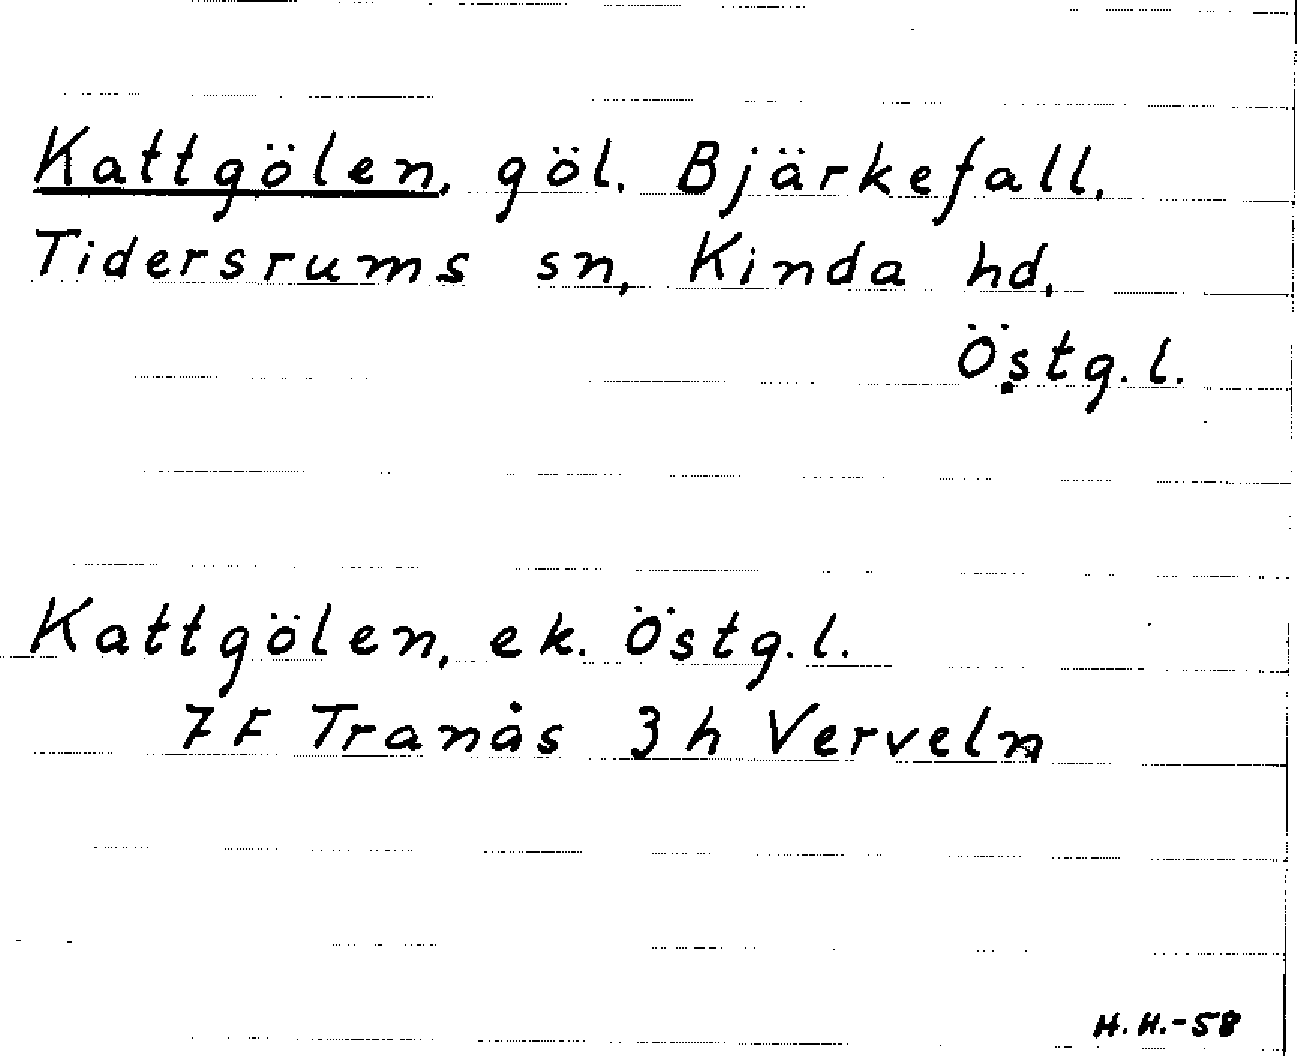 Kattgölen, göl. Bjärkefall,
Tidersrums sn, Kinda hd,
Östg.l.
Kattgölen, ek. Östg.l.
7F Tranås 3h Verveln
H.H.-58